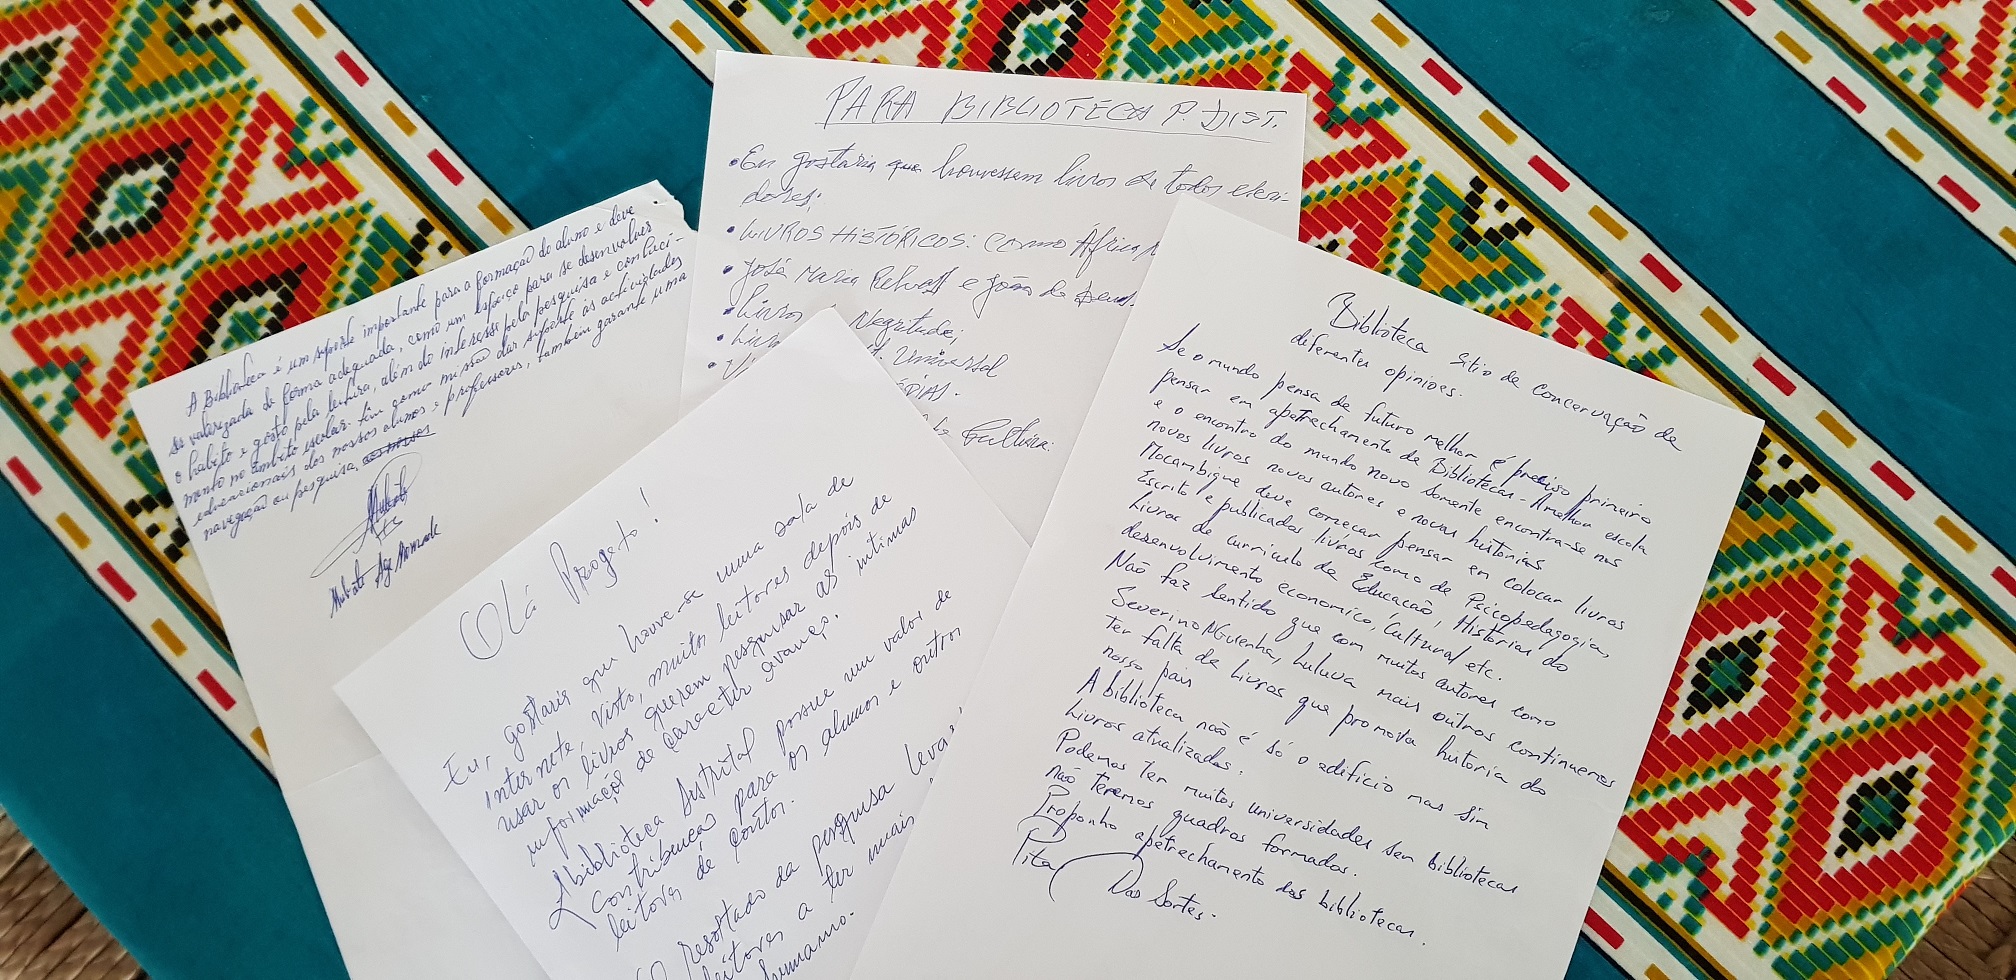 A Biblioteca é um suporte importante para a formação do aluno e deve
ser valorizada de forma adequada, como um espaço para se desenvolver
o habito e gosto pela leitura, além do interesse pela pesquisa e conheci-
mento no âmbito escolar. tem como missão dar suporte às actividades
educacionais dos nossos alunos e professores, também garante uma
navegação ou pesquisa
PARA BIBLIOTECA P. DIST.
• Eu gostaria que houvessem livros de todos
dores;
• LIVROS HISTÓRICOS: COMO África
• José Maria e João de
• Livros Negritude;
• Liv Universal
Cultura.
Olá Progeto!
Eu, gostaria que houve-se uma sala de
internete. Visto, muitos leitores depois de
usar os livros querem pesquisar as intimas
informaçõs de caracter avanço.
A biblioteca distrital possue um valor de
Contribuição para os alunos e outros
leitores de contos.
O resoltado da pesquisa levar
leitores a ter mais
humanno.
Biblioteca sitio de concervação de
diferentes opinioes.
Se o mundo pensa de futuro melhor é preciso primeiro
pensar em apetrechamento de Bibliotecas - A melhor escola
e o encontro do mundo novo somente encontra-se nos
novos livros novos autores e novas historias
Mocambique deve começar pensar em colocar livros
Escrito e publicados livros como de Psicopedagogia,
Livros de curriculo de Educação, Historias do
desenvolvimento economico, Cultural etc.
Não faz sentido que com muitos autores como
Severino NGuenha, Luluva mais outros continuemos
ter falta de livros que promova historia do
nosso pais
A biblioteca não é só o adificio mas sim
livros atualizados.
Podemos ter muitos universidades sem bibliotecas
não teremos quadros formados.
Proponho apetrechamento das bibliotecas.
Pita Das Sortes.